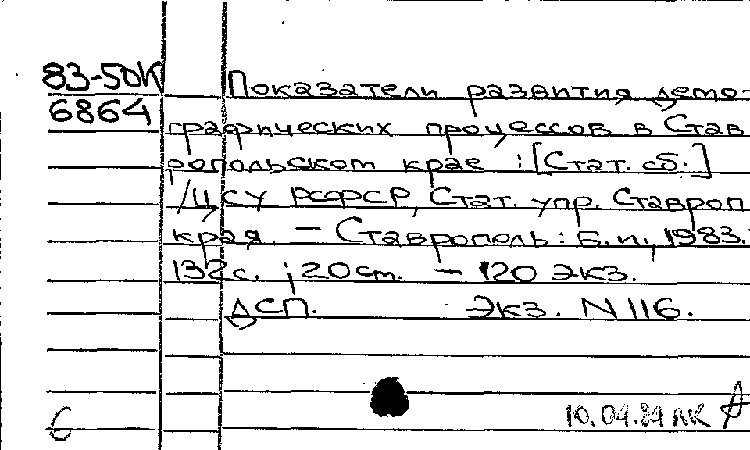 83-50К
6864
Показатели развития демо-
графических процессов в Став
ропольском крае : [Стат. сб.]
/ЦСУ РСФСР, Стат. упр. Ставроп
края. — Ставрополь: Б.и., 1983.
132с. ; 20см. — 120 экз.
ДСП. Экз. N 116.
10.04.89 ЛК